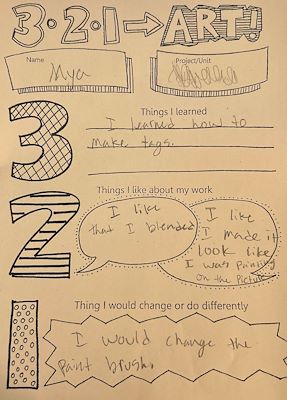 3·2·1→ART!
Name
Mya
Project/Unit
3
Things I learned
I learned how to
make tags.
2
Things I like about my work
I like
that I blended
I like
I made it
look like
I was painting
on the picture
1
Thing I would change or do differently
I would change the
paint brush.